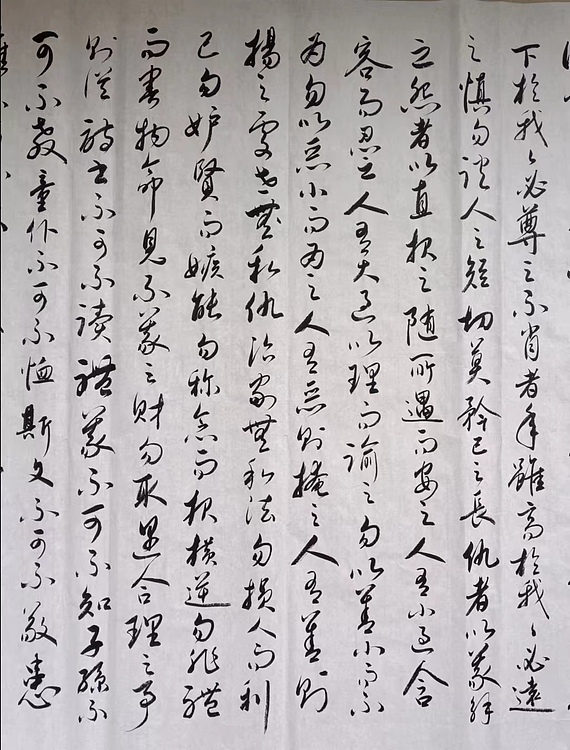 下於我〻必尊之不肖者年雖高於我〻必遠
之慎勿谈人之短切莫矜己之長仇者以義解
之怨者以直报之随所遇而安之人有小过含
容而忍之人有大过以理而谕之勿以善小而不
为勿以恶小而为之人有恶则掩之人有善则
揚之處世無私仇治家無私法勿损人而利
己勿妒賢而嫉能勿称忿而报横逆勿非禮
而害物命見不義之财勿取遇合理之事
则從詩书不可不读禮義不可不知子孫不
可不教童仆不可不恤斯文不可不敬患